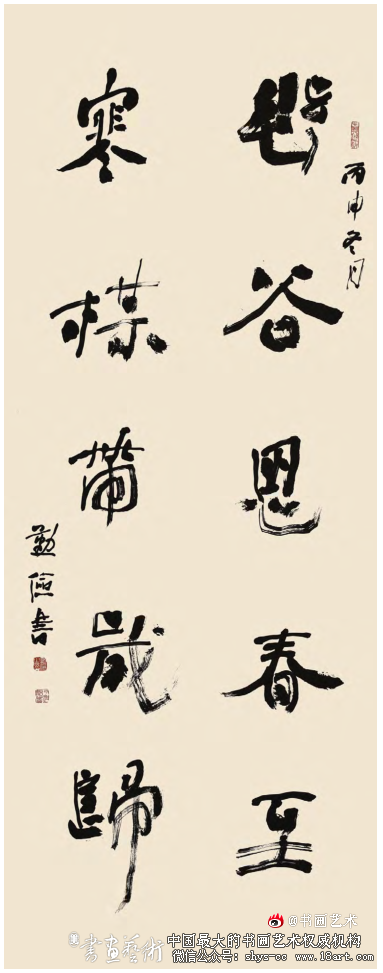 丙申冬月
谷思春至
寒楳帶歲歸
勤儉書
@书画艺术
書画藝術
中国最大的书画艺术权威机构
微信公众号: shys-cc www.18art.com